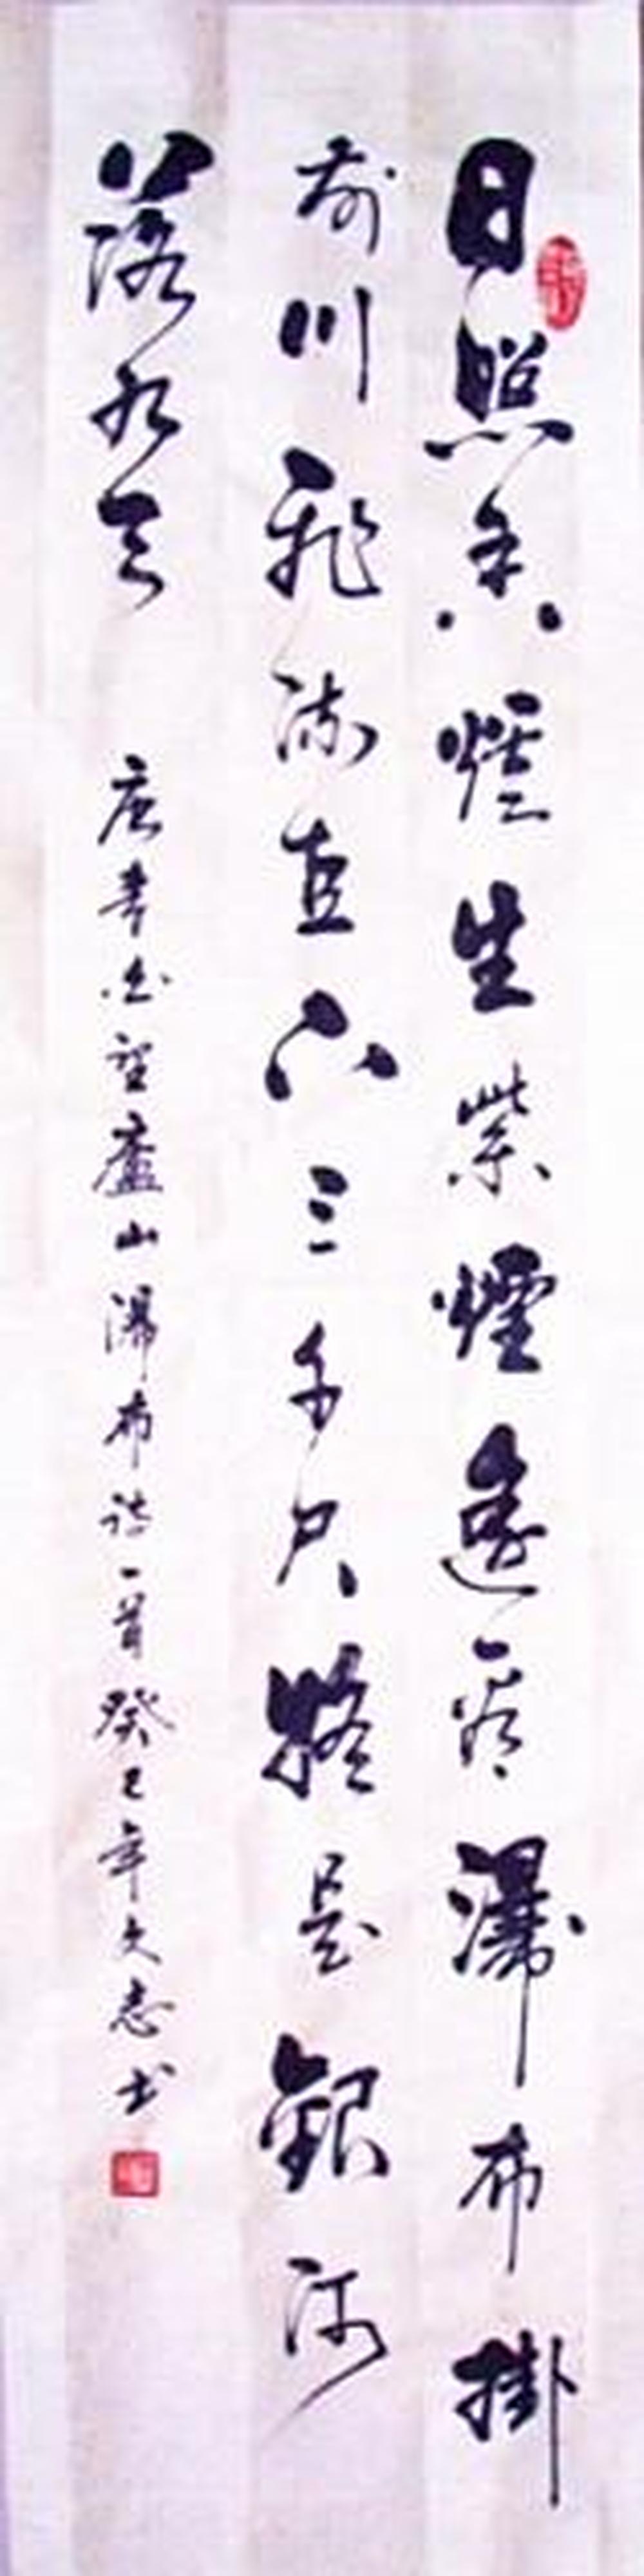 日照香炉生紫煙遥看瀑布掛
前川飛流直下三千尺疑是銀河
落九天 唐李白望廬山瀑布詩一首癸巳年久志书